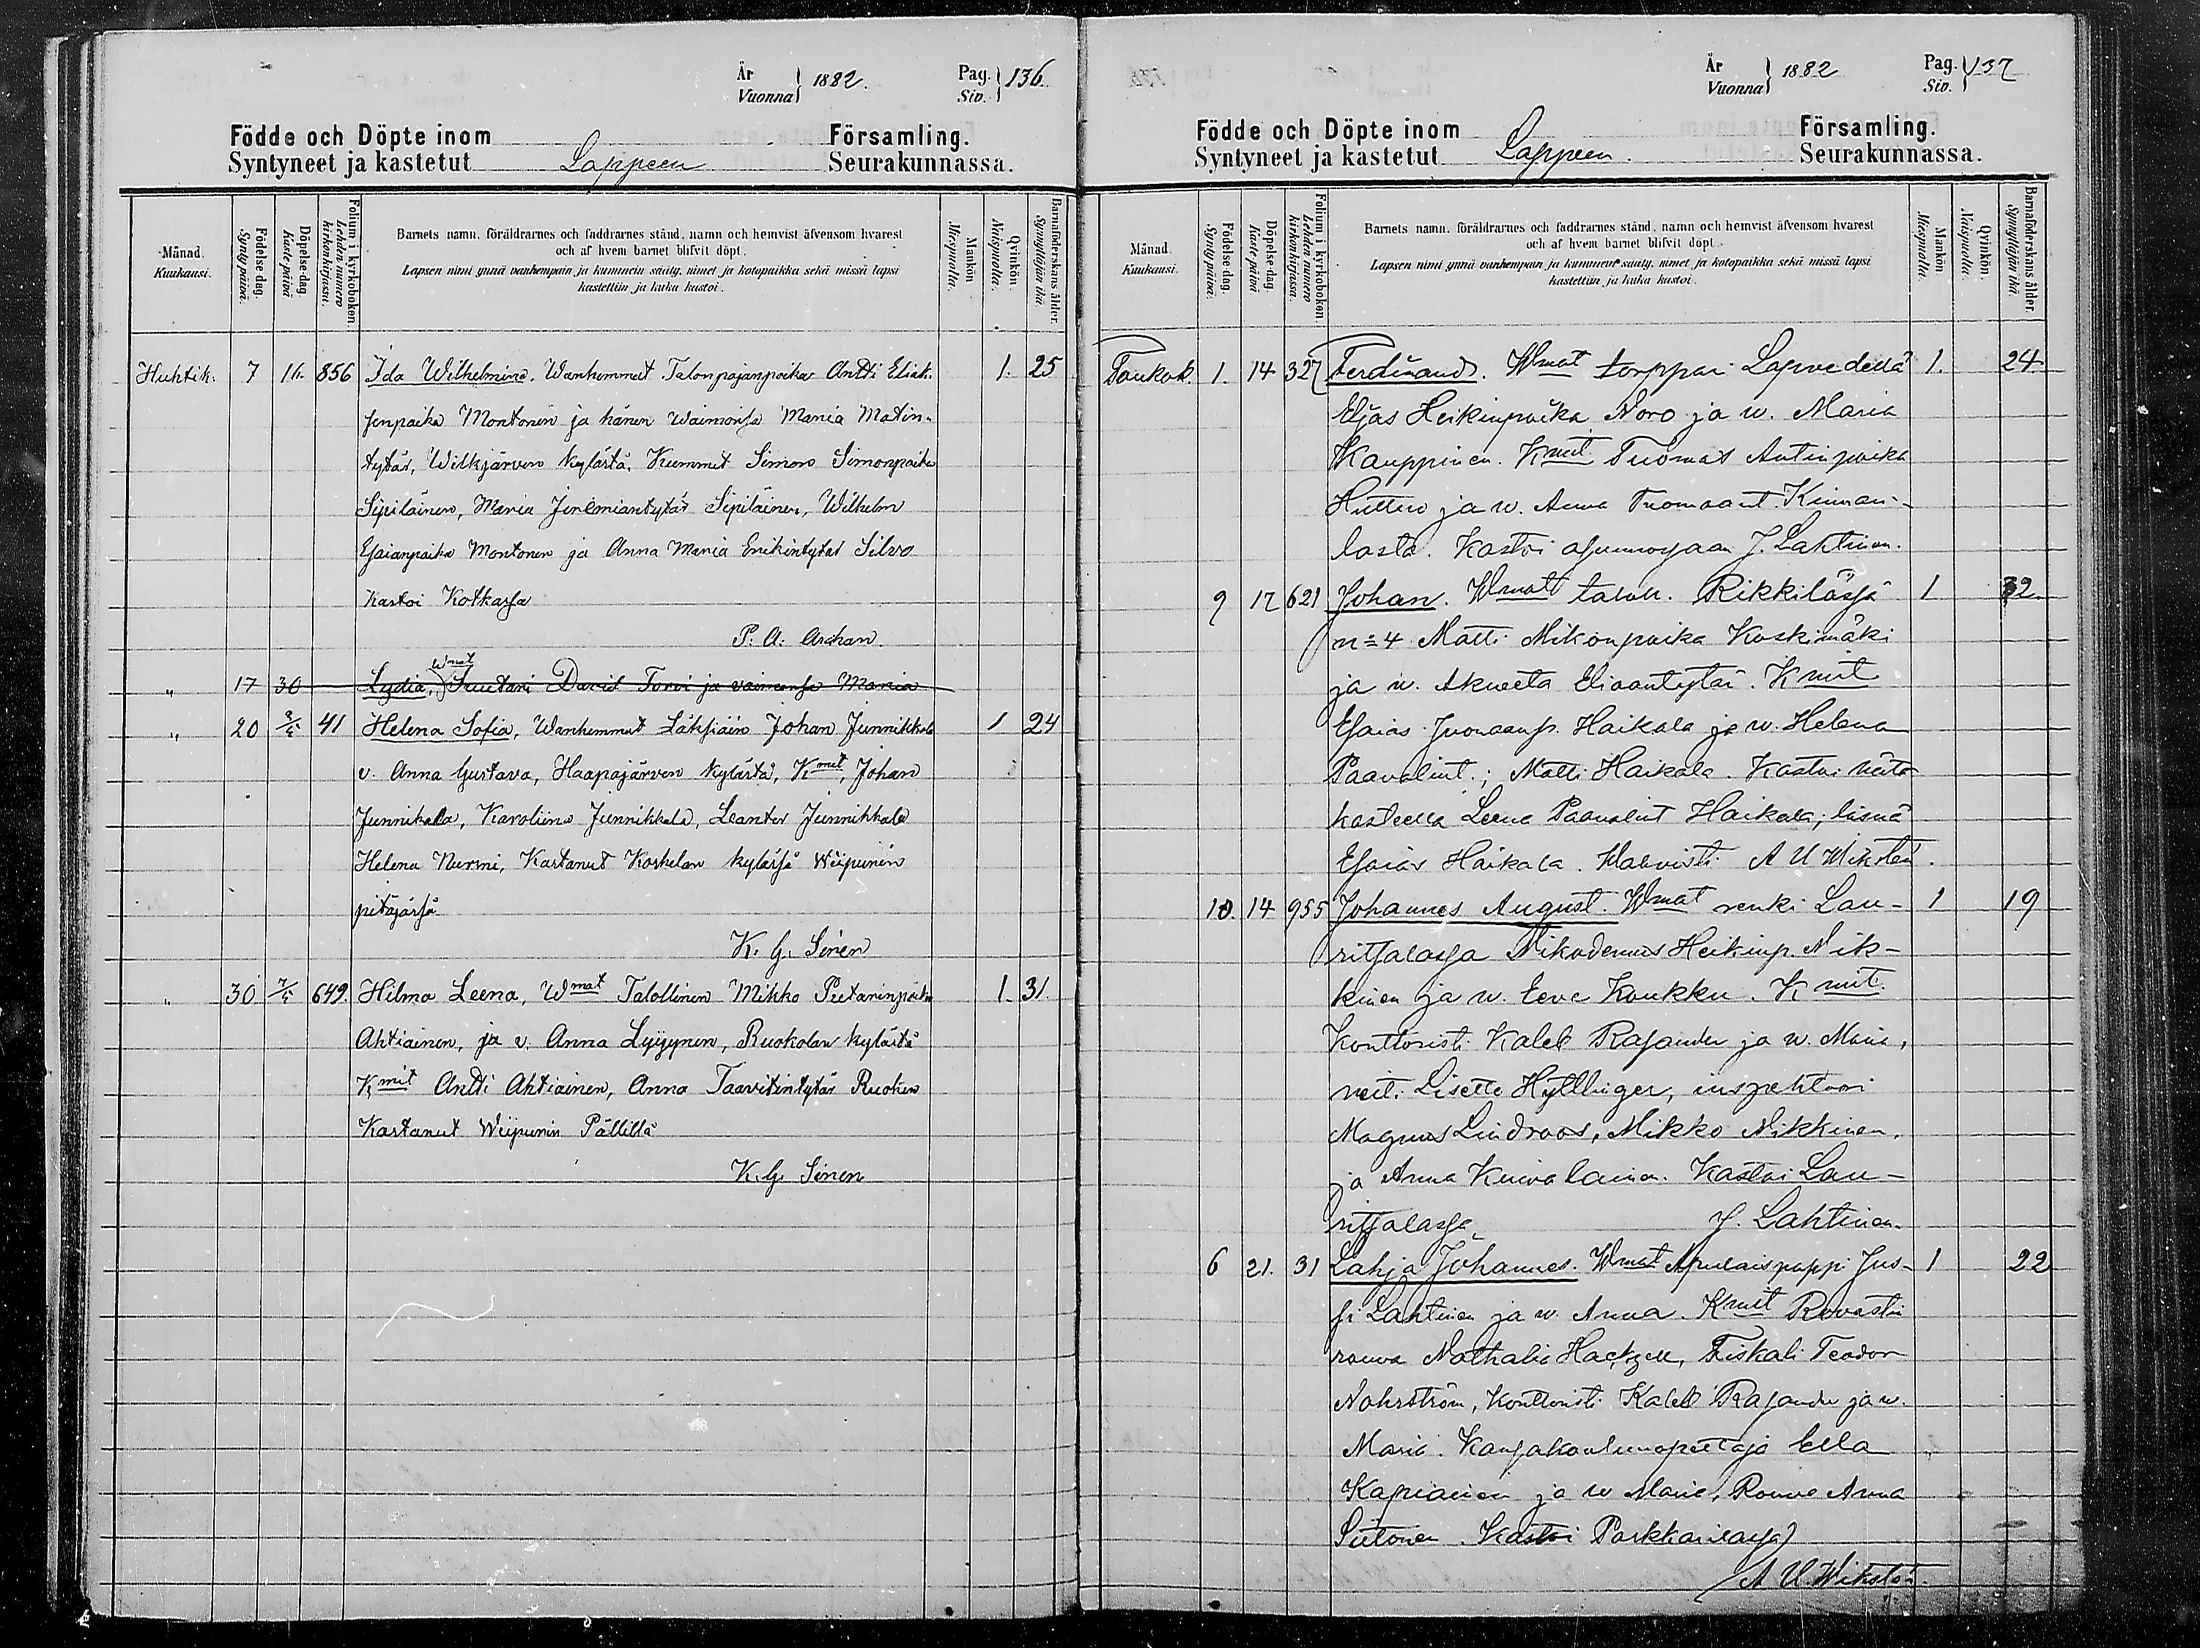 År
Vuonna } 1882.
Pag.
Siv. } 136.
Födde och Döpte inom Församling.
Syntyneet ja kastetut Lappeen Seurakunnassa.
Månad.
Kuukausi.
Födelse-dag.
Synty päivä.
Döpelse-dag.
Kaste päivä
Folium i kyrkoboken.
Lehden numero
kirkonkirjassa.
Barnets namn, föräldrarnes och faddrarnes stånd, namn och hemvist äfvensom hvarest
och af hvem barnet blifvit döpt.
Lapsen nimi ynnä vanhempain ja kummein sääty, nimet ja kotopaikka sekä missä lapsi
kastettiin ja kuka kastoi.
Mankön
Miespuolta.
Qvinkön
Naispuolta.
Barnaföderskans ålder.
Synnyttäjän ikä.
Huhtik. 7 16. 856 Ida Wilhelmina, Wanhemmat Talonpojanpoika Antti Eliak- 1. 25
senpoika Montonen ja hänen waimonsa Maria Matin-
tytär, Wilkjärven kylästä, Kummit Simon Simonpoika
Sipiläinen, Maria Jeremiantytär Sipiläinen, Wilhelm
Esaianpoika Montonen ja Anna Maria Erikintytär Silvo
Kastoi Kotkassa
P. A. Arohan.
" 17 30 Lydia, Wmat Suutari David Torvi ja vaimonsa Maria
" 20 2/5 41 Helena Sofia, Wanhemmat Läksiäin Johan Junnikkala 1 24
v. Anna Gustava, Haapajärven kylästä, Kmit, Johan
Junnikala, Karoliina Junnikkala, Leander Junnikkala
Helena Nurmi, Kastanut Koskelan kylässä Wiipurin
pitäjässä
K. G. Sirén
" 30 7/5 649. Hilma Leena, Wmat Talollinen Mikko Pietarinpoika 1. 31
Ahtiainen, ja v. Anna Lyijynen, Ruokolan kylästä
Kmit Antti Ahtiainen, Anna Taavitintytär Ruohen
Kastanut Wiipurin Pällillä
K. G. Sirén
År
Vuonna } 1882
Pag.
Siv. } 137
Födde och Döpte inom Församling.
Syntyneet ja kastetut Lappeen. Seurakunnassa.
Månad.
Kuukausi.
Födelse-dag.
Synty päivä.
Döpelse-dag.
Kaste päivä
Folium i kyrkoboken.
Lehden numero
kirkonkirjassa.
Barnets namn, föräldrarnes och faddrarnes stånd, namn och hemvist äfvensom hvarest
och af hvem barnet blifvit döpt.
Lapsen nimi ynnä vanhempain ja kummein sääty, nimet ja kotopaikka sekä missä lapsi
kastettiin ja kuka kastoi.
Mankön
Miespuolta.
Qvinkön.
Naispuolta.
Barnaföderskans ålder.
Synnyttäjän ikä.
Toukok. 1. 14 327 Ferdinand. Wmat torppari Lapvedellä 1. 24
Eljas Heikinpoika Noro ja w. Maria
Kauppinen. Kmit Tuomas Antinpoika
Huttu ja w. Anna Tuomaant. Kiman-
lasta. Kastoi J. Lahtinen.
9 17 621 Johan. Wmatt talol. Rikkilässä 1 32
n=4 Matti Mikonpoika Koskimäki
ja w. Akneeta Eliaantytär. Kmit
Esaias Juonaanp. Haikala ja w. Helena
Paavalint.; Matti Haikala. Kastoi hätä
kasteella Leena Paavalint Haikala; läsnä
Esaias Haikala. Wahvisti A U Wikstén.
10. 14 955 Johannes August. Wmat renki Lau- 1 19
ritsalassa Nikodemus Heikinp. Nik-
kinen ja w. Eeva Koukku. Kmit.
Konttoristi Kaleb Rajander ja w. Maria,
neit. Lisette Hyttlinger, inspehtori
Magnus Lindroos, Mikko Nikkinen,
ja Anna Kuivalainen. Kastoi Lau-
ritsalassa J. Lahtinen.
6 21. 31 Lahja Johannes. Wmat Apulaispappi Jus- 1 22
si Lahtinen ja w. Anna. Kmit Rovastin
rouva Nathalia Hackzell, Fiskali Teodor
Nohrström, Konttoristi Kaleb Rajander ja w.
Maria. Kansakoulunopettaja Ella
Kapiainen ja w Maria, Rouva Anna
Siitonen. Kastoi Parkkarilassa
A. U. Wikstén.